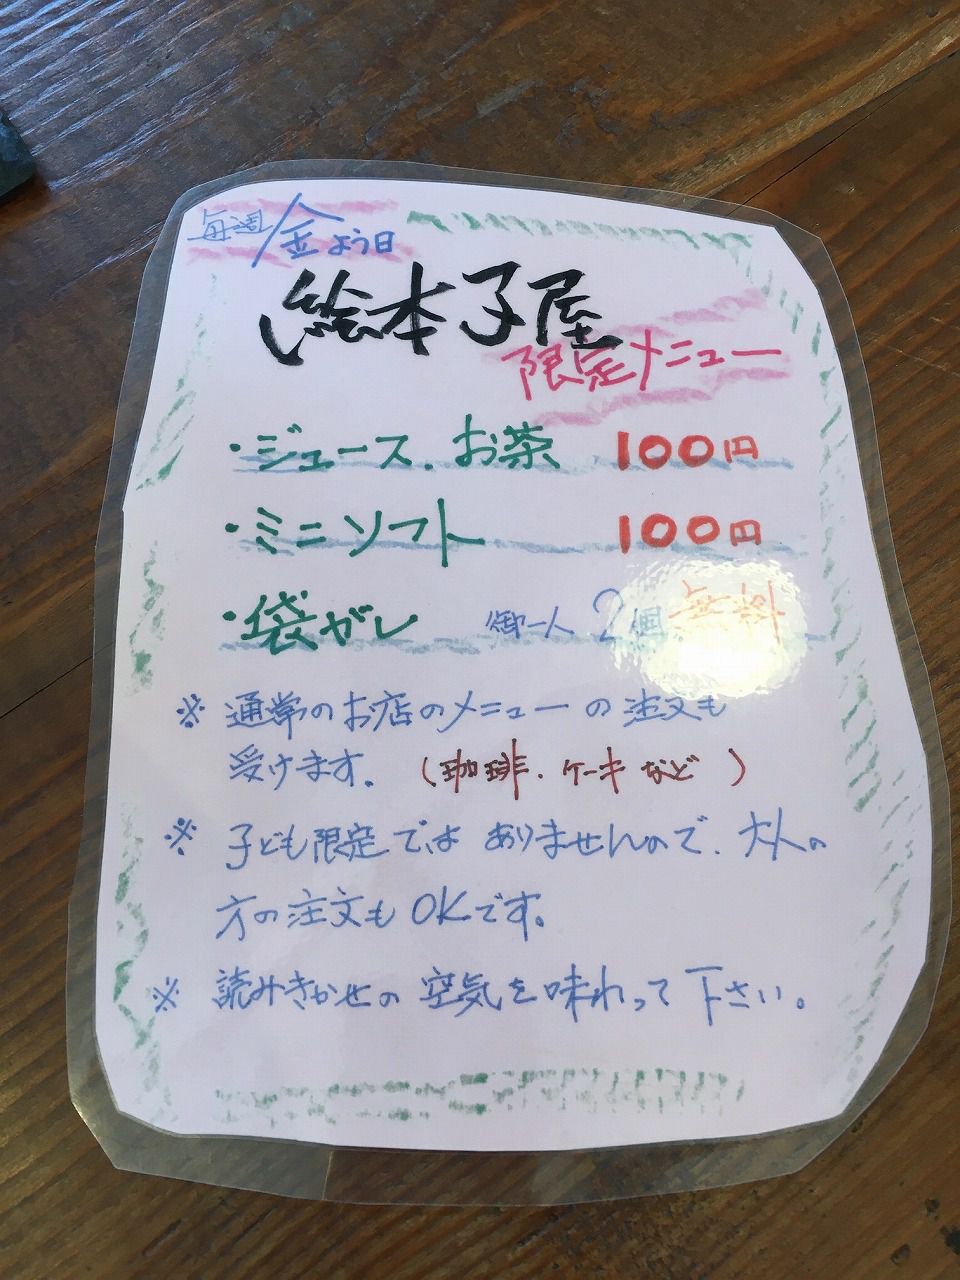 毎週/金よう日
絵本子屋
限定メニュー
・ジュース.お茶 100円
・ミニソフト 100円
・袋ガシ 御一人 2個 無料
※ 通常のお店のメニューの注文も
受けます。(珈琲.ケーキなど)
※ 子ども限定ではありませんので.大人の
方の注文もOKです。
※ 読みきかせの空気を味わって下さい。